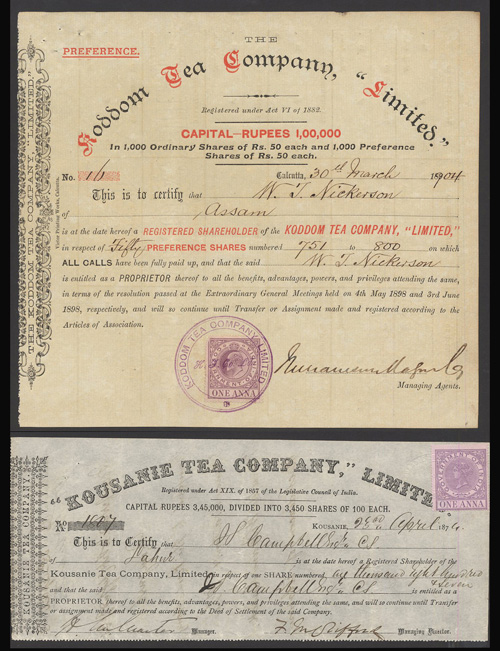 PREFERENCE.
THE
Koddom Tea Company, "Limited."
Registered under Act VI of 1882.
CAPITAL—RUPEES 1,00,000
In 1,000 Ordinary Shares of Rs. 50 each and 1,000 Preference
Shares of Rs. 50 each.
No. 16 Calcutta, 30th March 1904
This is to certify that W. T. Nickerson
of Assam
is at the date hereof a REGISTERED SHAREHOLDER of the KODDOM TEA COMPANY, "LIMITED,"
in respect of Fifty PREFERENCE SHARES numbered 751 to 800 on which
ALL CALLS have been fully paid up, and that the said W. T. Nickerson
is entitled as a PROPRIETOR to all the benefits, advantages, powers, and privileges attending the same,
in terms of the resolution passed at the Extraordinary General Meetings held on 4th May 1898 and 3rd June
1898, respectively, and will so continue until Transfer or Assignment made and registered according to the
Articles of Association.
KODDOM TEA COMPANY LIMITED
ONE ANNA
Managing Agents.
THE KODDOM TEA COMPANY, LIMITED.
"KOUSANIE TEA COMPANY," LIMITED
Registered under Act XIX. of 1857 of the Legislative Council of India.
CAPITAL RUPEES 3,45,000, DIVIDED INTO 3,450 SHARES OF 100 EACH.
No. 1807 KOUSANIE, 2nd April
This is to Certify that Campbell CS
of
is at the date hereof a Registered Shareholder of the
Kousanie Tea Company, Limited, in respect of one SHARE NUMBERED, one thousand eight hundred
& seven
and that the said Campbell CS is entitled as a
PROPRIETOR to all the benefits, advantages, powers, and privileges attending the same, and will so continue until Transfer
or assignment made and registered according to the Deed of Settlement of the said Company.
Manager. Managing Director.